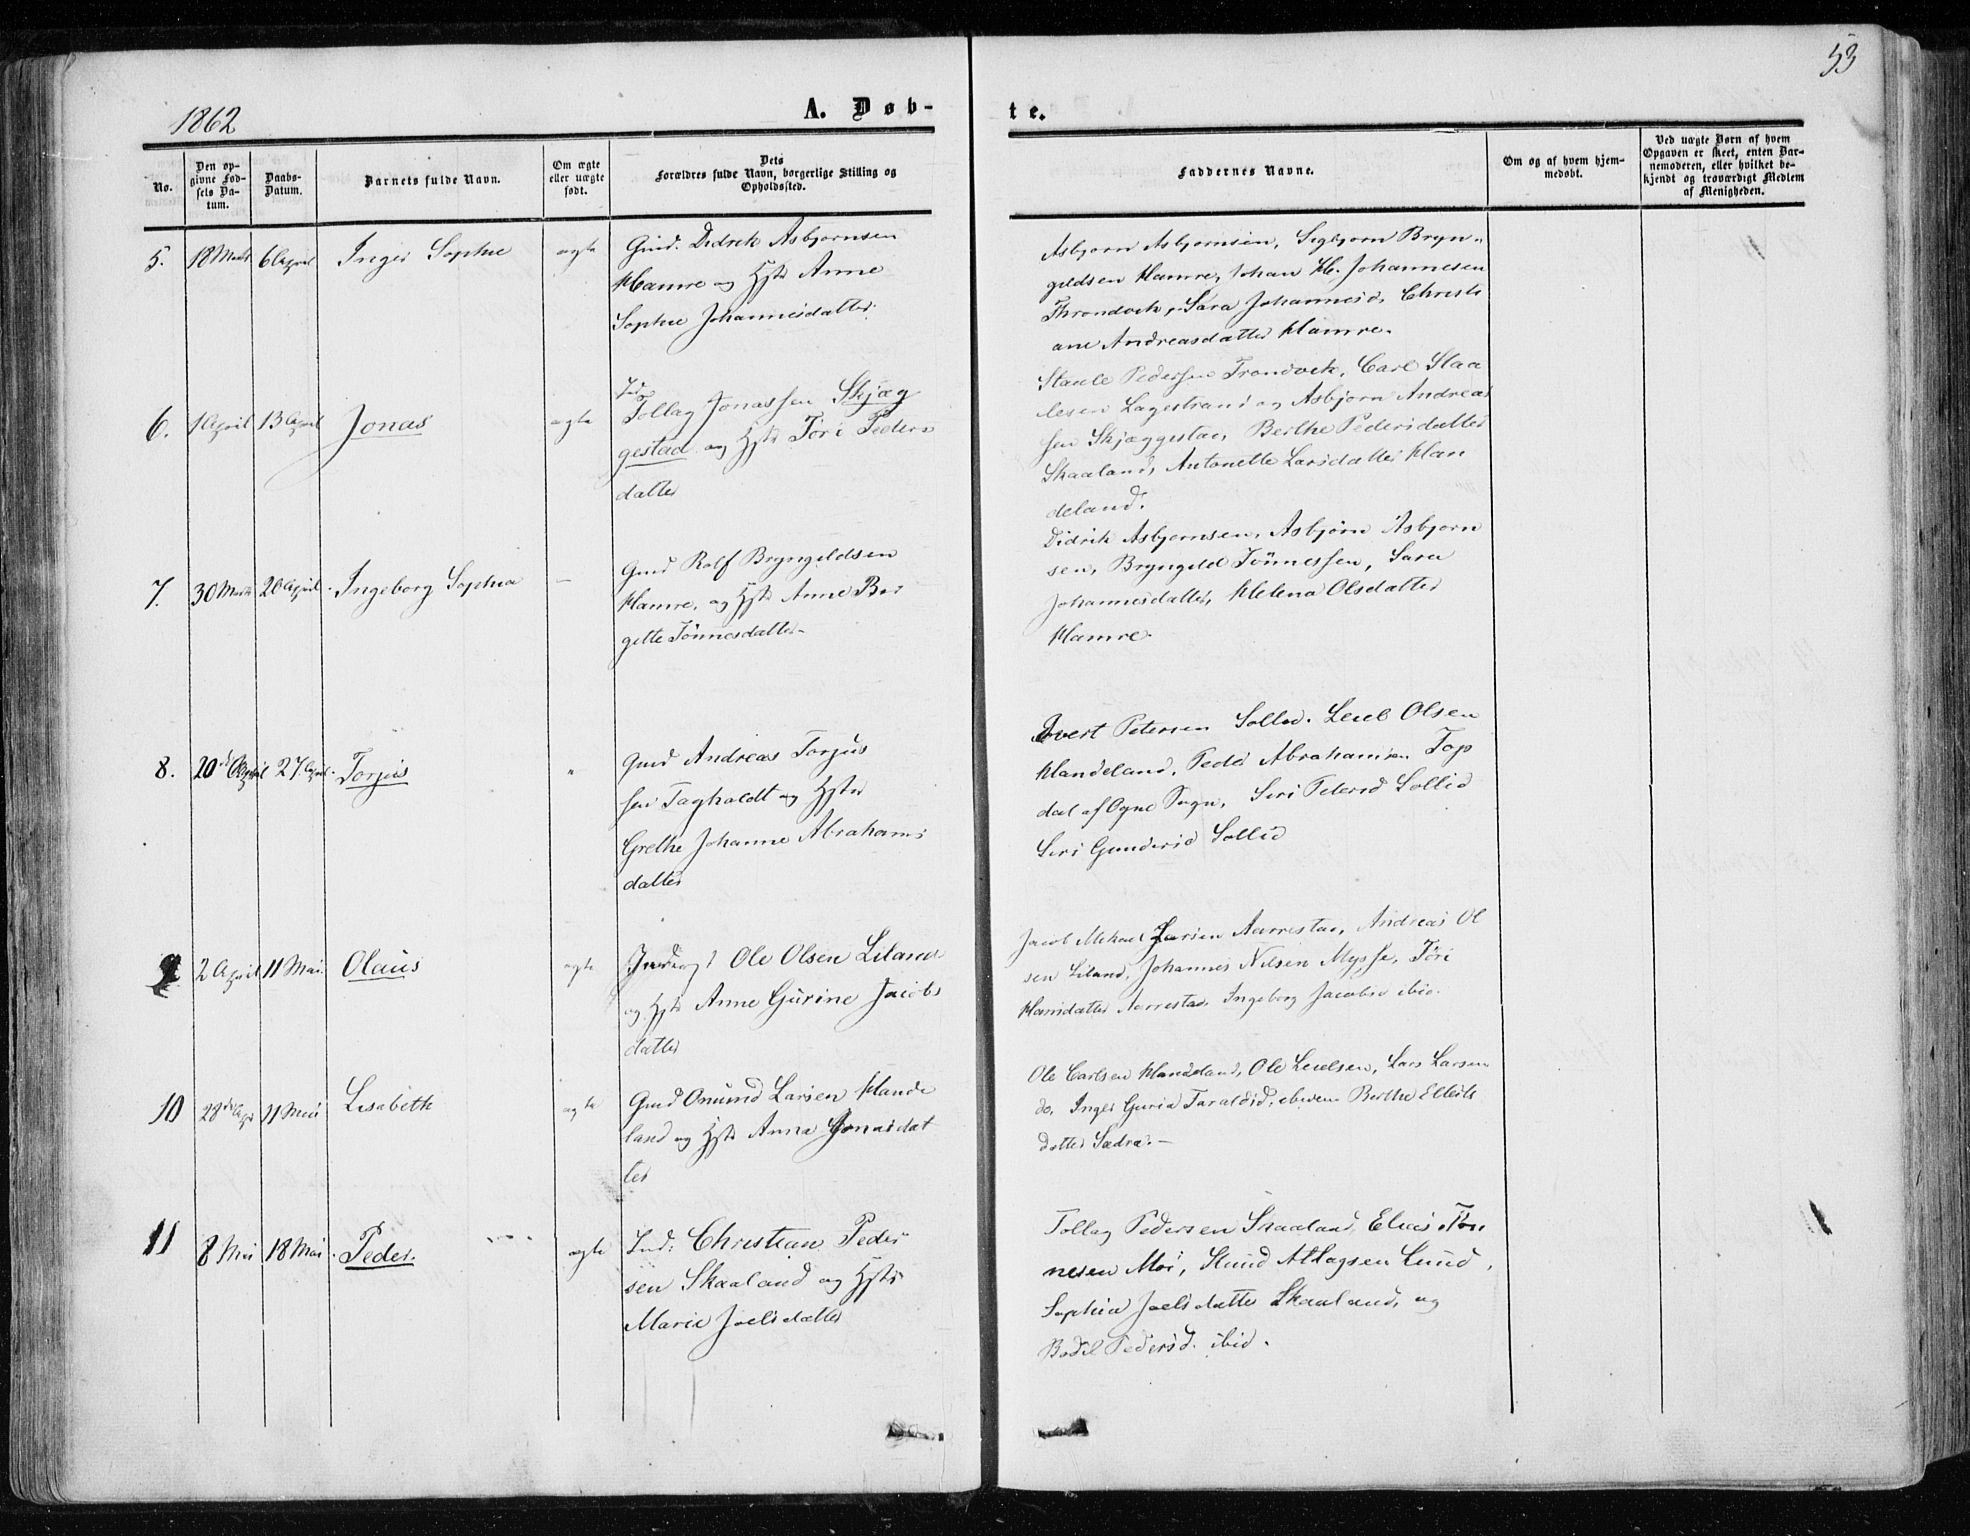 53
1862
A. Døb-
te.
No.
Den op-
givne Fød-
sels Da-
tum.
Daabs-
Datum.
Barnets fulde Navn.
Om ægte
eller uægte
født.
Dets
Forældres fulde Navn, borgerlige Stilling og
Opholdssted.
Faddernes Navne.
Om og af hvem hjem-
medøbt.
Ved uægte Børn af hvem
Opgaven er skeet, enten Bar-
nemoderen, eller hvilket be-
kjendt og troværdigt Medlem
af Menigheden.
5. 18 Marts 6 April Inger Sophie ægte
Gmd. Didrik Asbjørnsen
Hamre og Hstr Anne
Sophie Johannesdatter.
Asbjørn Asbjørnsen, Sigbjørn Bryn-
geldsen Hamre, Johan H. Johannesen
Throndvik, Sara Johannesd, Christi
ane Andreasdatter Hamre.
6. 1 April 13 April Jonas ægte
Tollag Jonassen Skjæg
gestad og Hstr Tøri Peders
datter
Staale Pedersen Trondvik, Carl Staa
lesen Lagestrand og Asbjørn Andreas
sen Skjæggestad, Berthe Pedersdatter
Skaaland, Antonette Larsdatter Han
deland.
7. 30 Marts 20 April Ingeborg Sophia —
Gmd Rolf Bryngeldsen
Hamre, og Hstr Anne Ber
gette Tönnesdatter
Didrik Asbjørnsen, Asbjørn Asbjørn
sen, Bryngeld Tönnessen, Sara
Johannesdatter, Helena Olsdatter
Hamre.
8. 20de April 27 April Torjus "
Gmd Andreas Torjus
sen Tagholdt og Hstr
Grethe Johanne Abrahams
datter
Evert Petersen Sollid. Leul Olsen
Handeland, Peder Abrahamsen Top
dal af Ogne Sogn, Siri Petersd Sollid
Siri Gundersd Sollid
9 2 April 11 Mai Olaus ægte
Ole Olsen Liland
og Hstr Anne Gurine Jacobs
datter
Jacob Mikael Larsen Aarrestad, Andreas Ol
sen Liland, Johannes Nilsen Mysse, Tøri
Hansdatter Aarrestad. Ingeborg Jacobsd ibid.
10 28de April 11 Mai Lisabeth ægte
Gmd Omund Larsen Hande
land og Hstr Anna Jonasdat
ter
Ole Carlsen Handeland, Ole Leulsen, Lars Larsen
do, Inger Guria Taraldsd, ibidem Berthe Ellefs
datter Sædra. —
11 8 Mai 18 Mai Peder. ægte
Ind: Christian Peder
sen Skaaland og Hstr
Marie Joelsdatter
Tollag Pedersen Skaaland, Elias Tön
nesen Moi, Knud Atlagsen Lund,
Sophia Joelsdatter Skaaland, og
Bodil Pedersd. ibid.